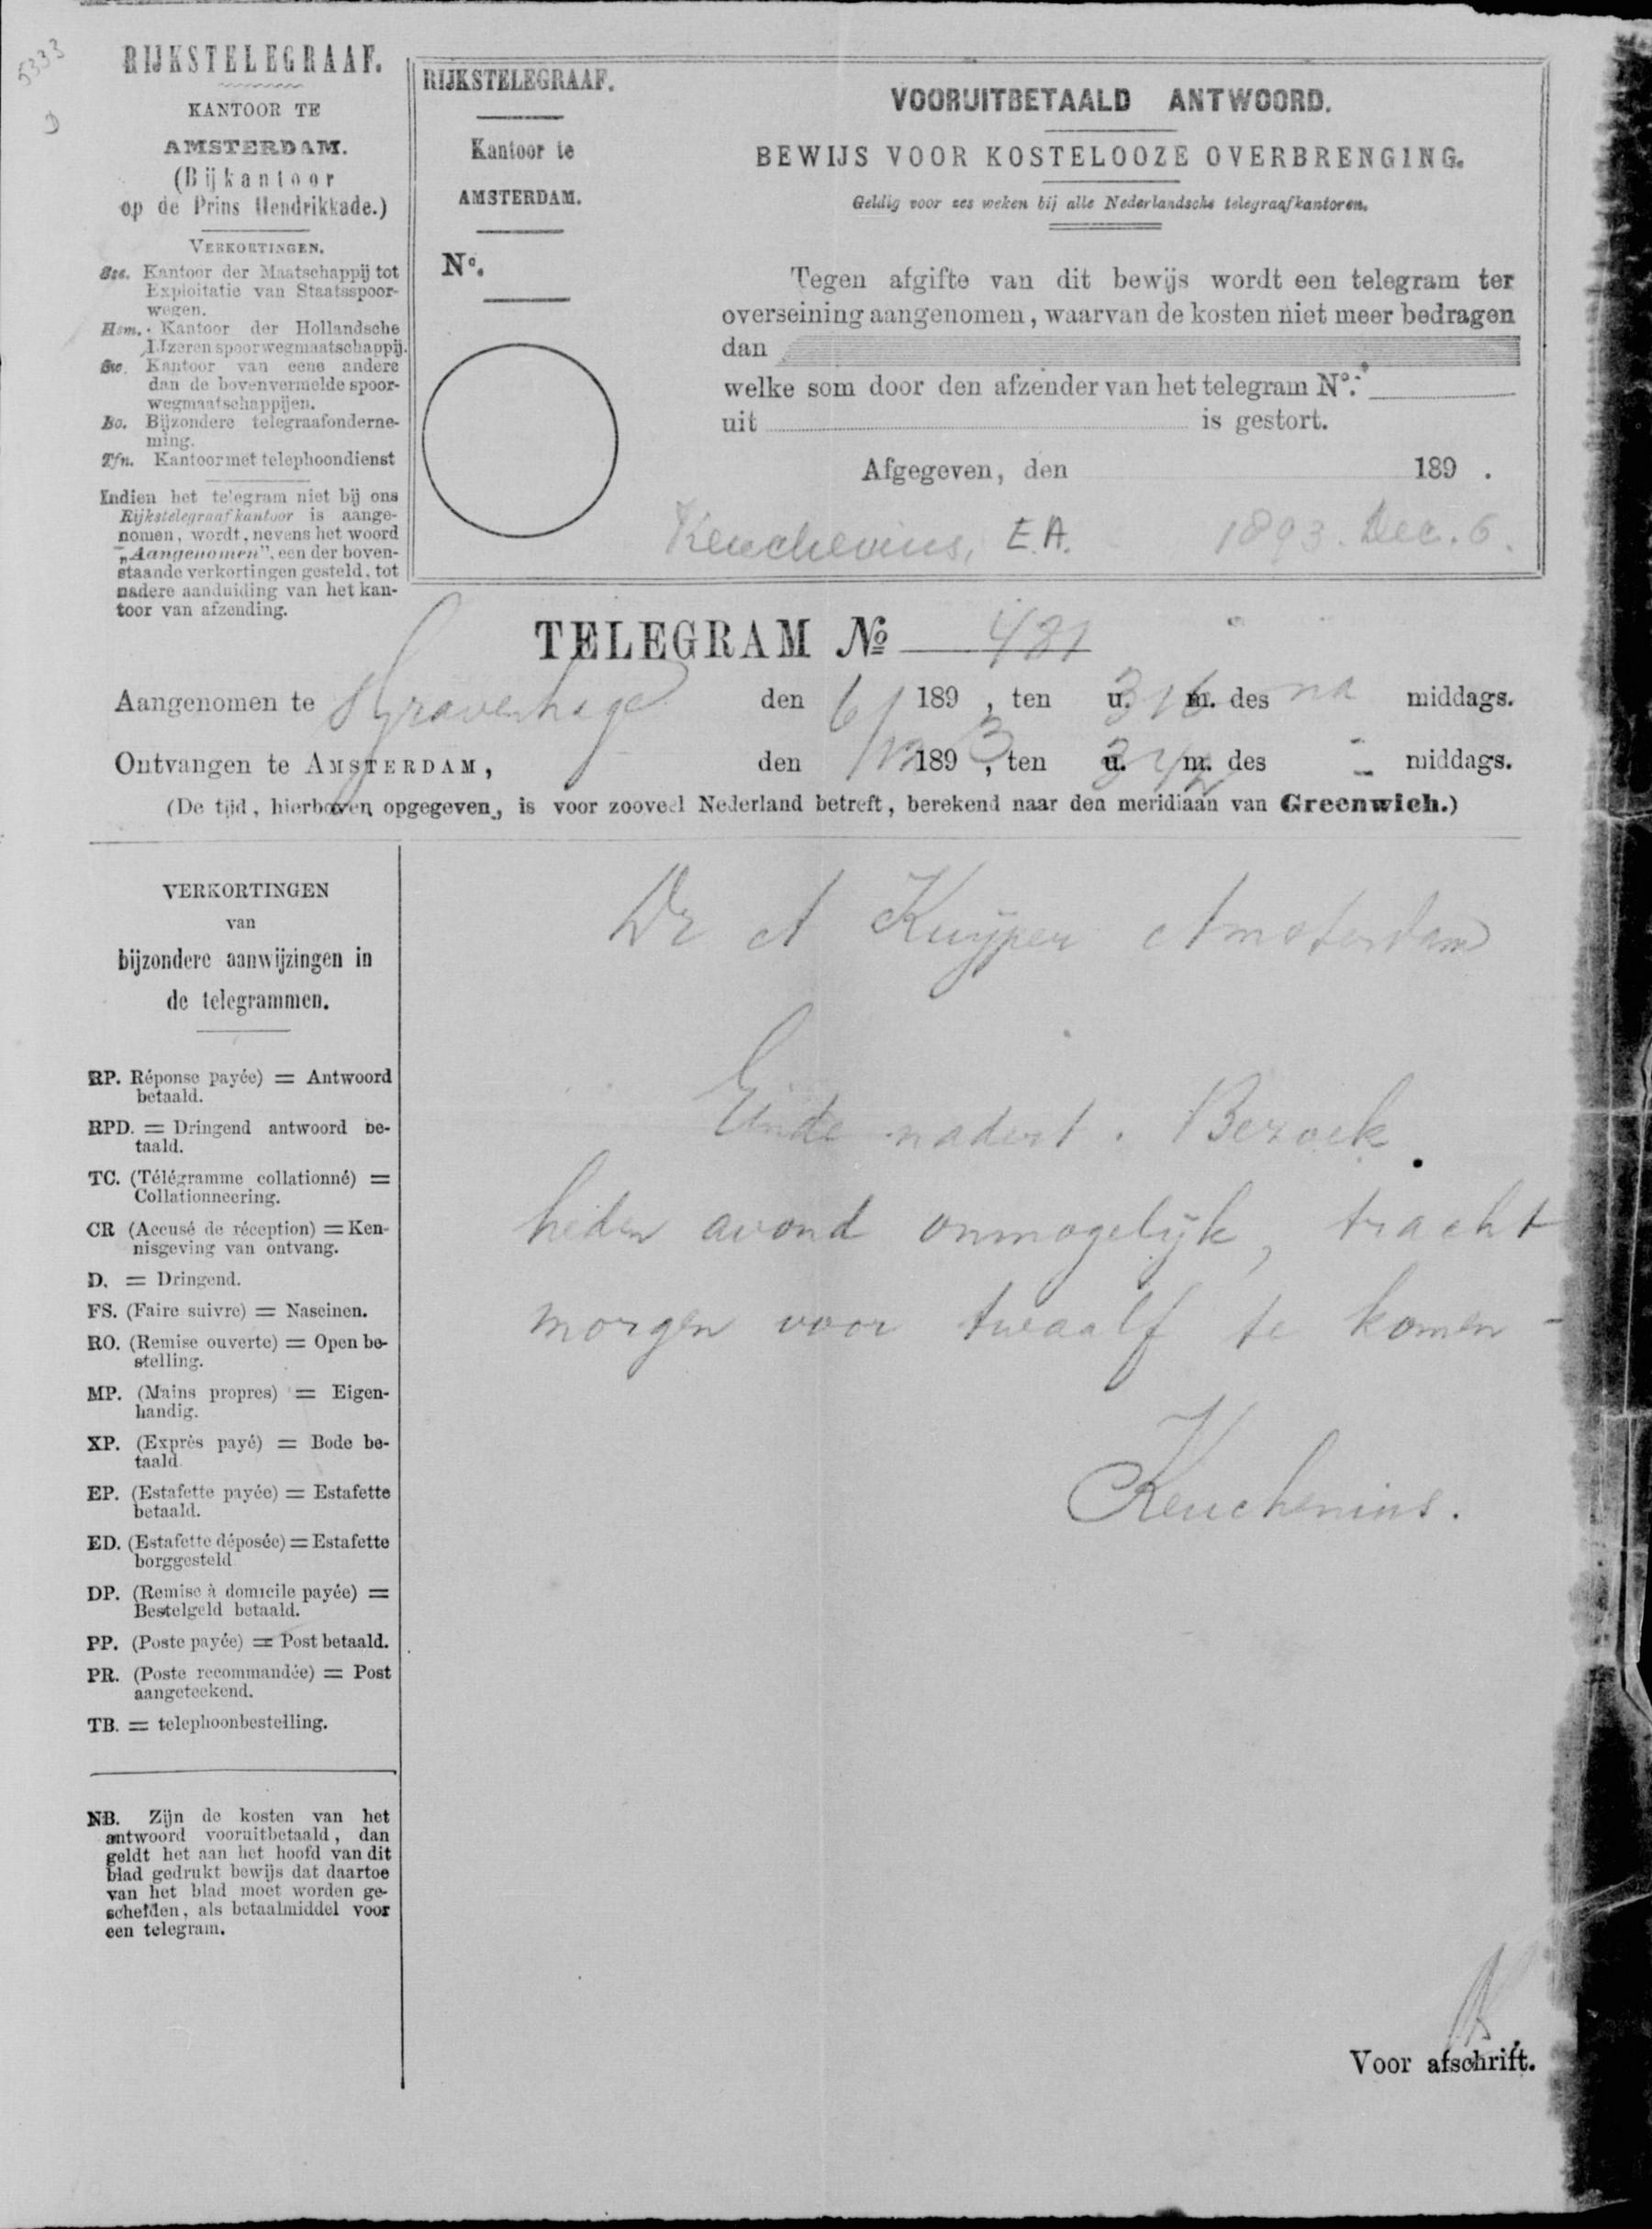 5333
RIJKSTELEGRAAF.
KANTOOR TE
AMSTERDAM.
(Bijkantoor
op de Prins Hendrikkade.)
VERKORTINGEN.
Sss. Kantoor der Maatschappij tot
Exploitatie van Staatsspoor-
wegen.
Hsm. Kantoor der Hollandsche
IJzeren spoorwegmaatschappij.
Kantoor van eene andere
dan de bovenvermelde spoor-
wegmaatschappijen.
Bo. Bijzondere telegraafonderne-
ming.
Tfn. Kantoor met telephoondienst
Indien het telegram niet bij ons
Rijkstelegraafkantoor is aange-
nomen, wordt, nevens het woord
„Aangenomen", een der boven-
staande verkortingen gesteld, tot
nadere aanduiding van het kan-
toor van afzending.
RIJKSTELEGRAAF.
Kantoor te
AMSTERDAM.
No.
VOORUITBETAALD ANTWOORD.
BEWIJS VOOR KOSTELOOZE OVERBRENGING.
Geldig voor zes weken bij alle Nederlandsche telegraafkantoren.
Tegen afgifte van dit bewijs wordt een telegram ter
overseining aangenomen, waarvan de kosten niet meer bedragen
dan
welke som door den afzender van het telegram No.
uit is gestort.
Afgegeven, den 189 .
Keuchenius, E.A. 1893. Dec. 6.
TELEGRAM No 481
Aangenomen te sGravenhage den 6/ 189 , ten u. 3 16 m. des na middags.
Ontvangen te AMSTERDAM, den /12 189 3, ten u. 3 m. des " middags.
(De tijd, hierboven opgegeven, is voor zooveel Nederland betreft, berekend naar den meridiaan van Greenwich.)
VERKORTINGEN
van
bijzondere aanwijzingen in
de telegrammen.
RP. Réponse payée) = Antwoord
betaald.
RPD. = Dringend antwoord be-
taald.
TC. (Télégramme collationné) =
Collationneering.
CR (Accusé de réception) = Ken-
nisgeving van ontvang.
D. = Dringend.
FS. (Faire suivre) = Naseinen.
RO. (Remise ouverte) = Open be-
stelling.
MP. (Mains propres) = Eigen-
handig.
XP. (Exprès payé) = Bode be-
taald
EP. (Estafette payée) = Estafette
betaald.
ED. (Estafette déposée) = Estafette
borggesteld
DP. (Remise à domicile payée) =
Bestelgeld betaald.
PP. (Poste payée) = Post betaald.
PR. (Poste recommandée) = Post
aangeteekend.
TB. = telephoonbestelling.
NB. Zijn de kosten van het
antwoord vooruitbetaald, dan
geldt het aan het hoofd van dit
blad gedrukt bewijs dat daartoe
van het blad moet worden ge-
scheiden, als betaalmiddel voor
een telegram.
Dr A Kuyper Amsterdam
Einde nadert. Bezoek
heden avond onmogelijk, tracht
morgen voor twaalf te komen -
Keuchenius.
Voor afschrift.